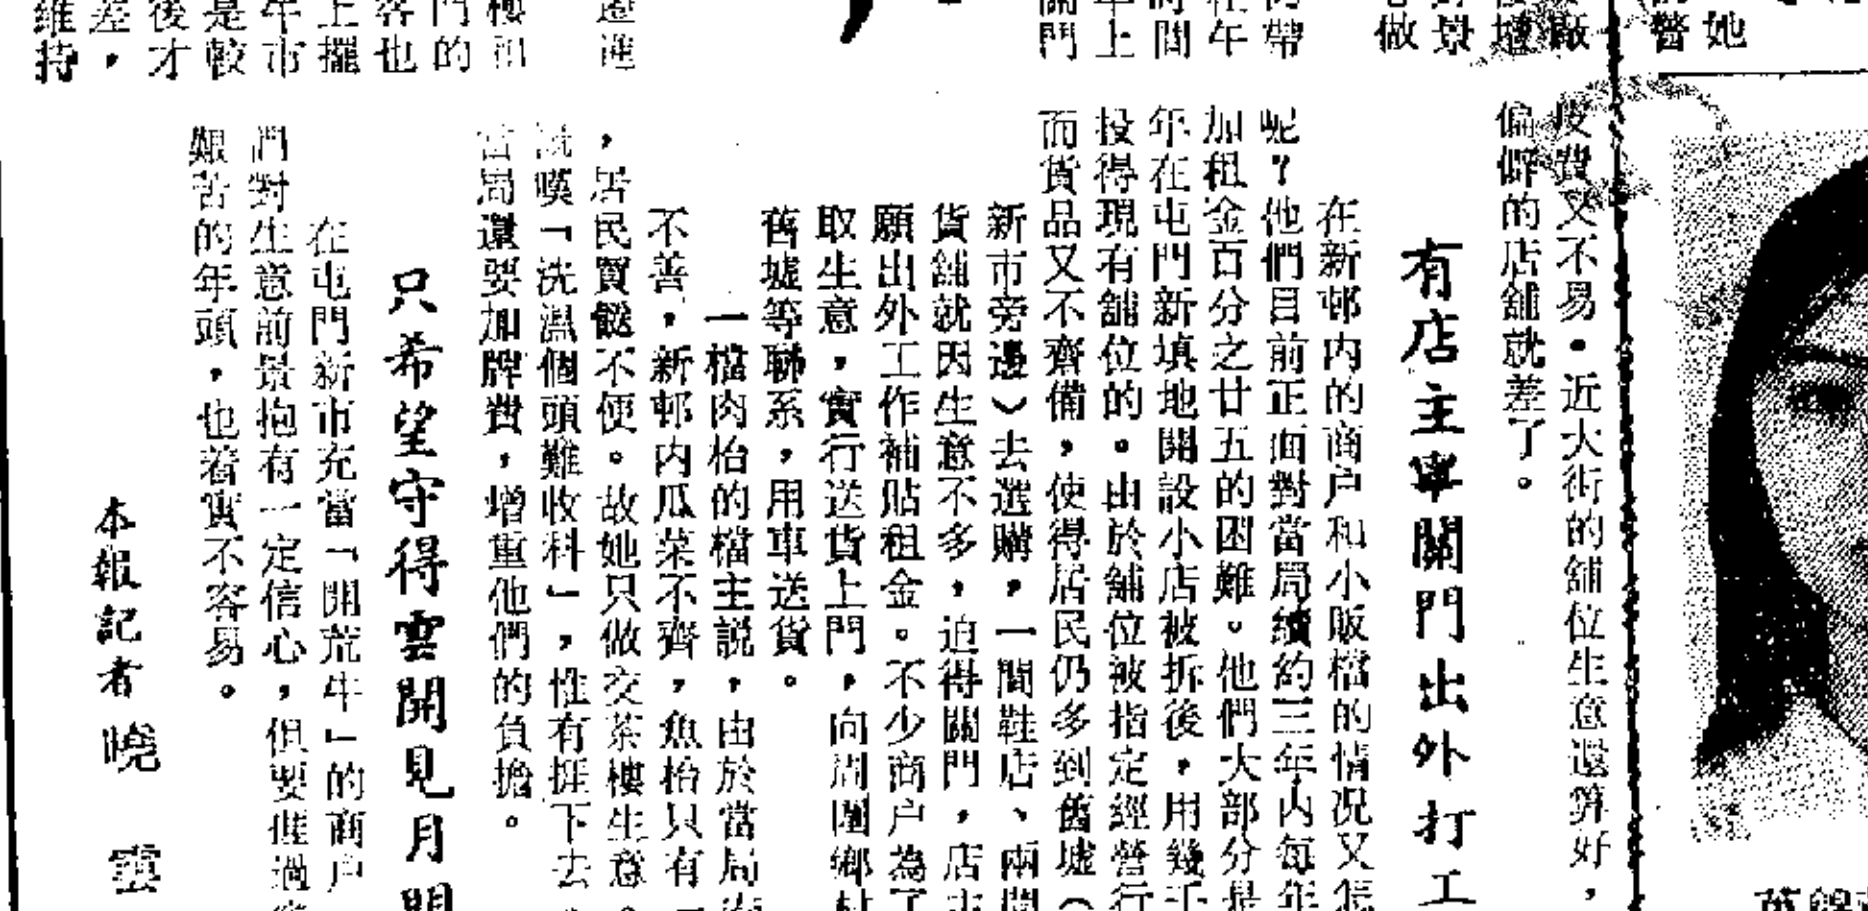 她
醫
廠
墟
景
做
帶
年
時間
年上
關門
進
樓租
門的
客也
上擺
年市
是較
後才
差，
維持
度費又不易。近大街的舖位生意還算好，
偏僻的店舖就差了。
有店主寧關門出外打工
在新邨內的商户和小販檔的情况又怎
呢？他們目前正面對當局續約三年內每年
加租金百分之廿五的困難。他們大部分是
年在屯門新填地開設小店被拆後，用幾千
投得現有舖位的。由於舖位被指定經營行
而貨品又不齊備，使得居民仍多到舊墟（
新市旁邊）去選購，一間鞋店、兩間
貨舖就因生意不多，迫得關門，店主
願出外工作補貼租金。不少商户為了
取生意，實行送貨上門，向周圍鄉村
舊墟等聯系，用車送貨。
一檔肉枱的檔主説，由於當局
不善，新邨内瓜菜不齊，魚枱只有一
，居民買餸不便。故她只做交茶樓生意。
説嘆「洗濕個頭難收科」，惟有捱下去。
當局還要加牌費，增重他們的負擔。
只希望守得雲開見月明
在屯門新市充當「開荒牛」的商户
們對生意前景抱有一定信心，但要捱過
艱苦的年頭，也着實不容易。
本報記者 曉 雲